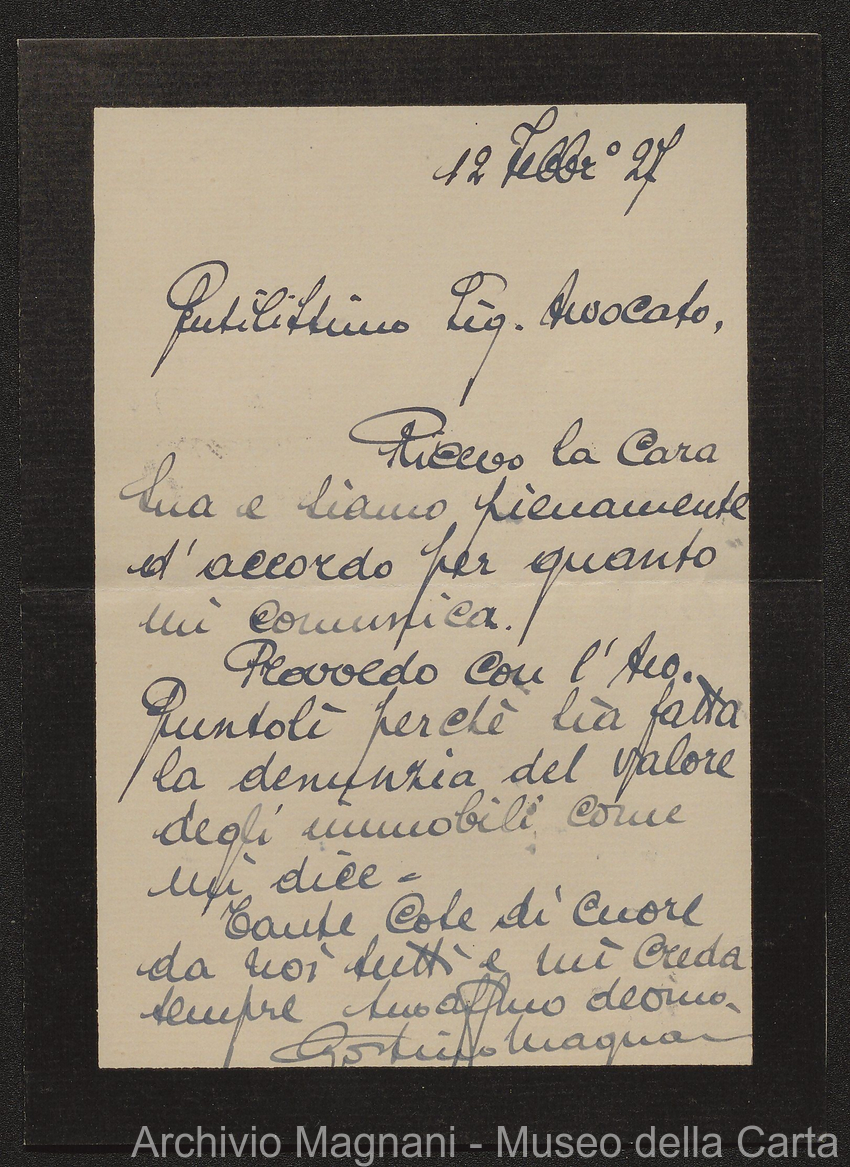 12 Febbr° 27
Gentilissimo Sig. Avvocato,
Ricevo la Cara
Sua e siamo pienamente
d'accordo per quanto
mi comunica.
Provvedo con l'Avv.
Puntoli perchè sia fatta
la denunzia del valore
degli immobili come
mi dice -
Tante Cose di Cuore
da noi tutti e mi Creda
sempre Suo affmo devmo.
Agostino Magnani
Archivio Magnani - Museo della Carta